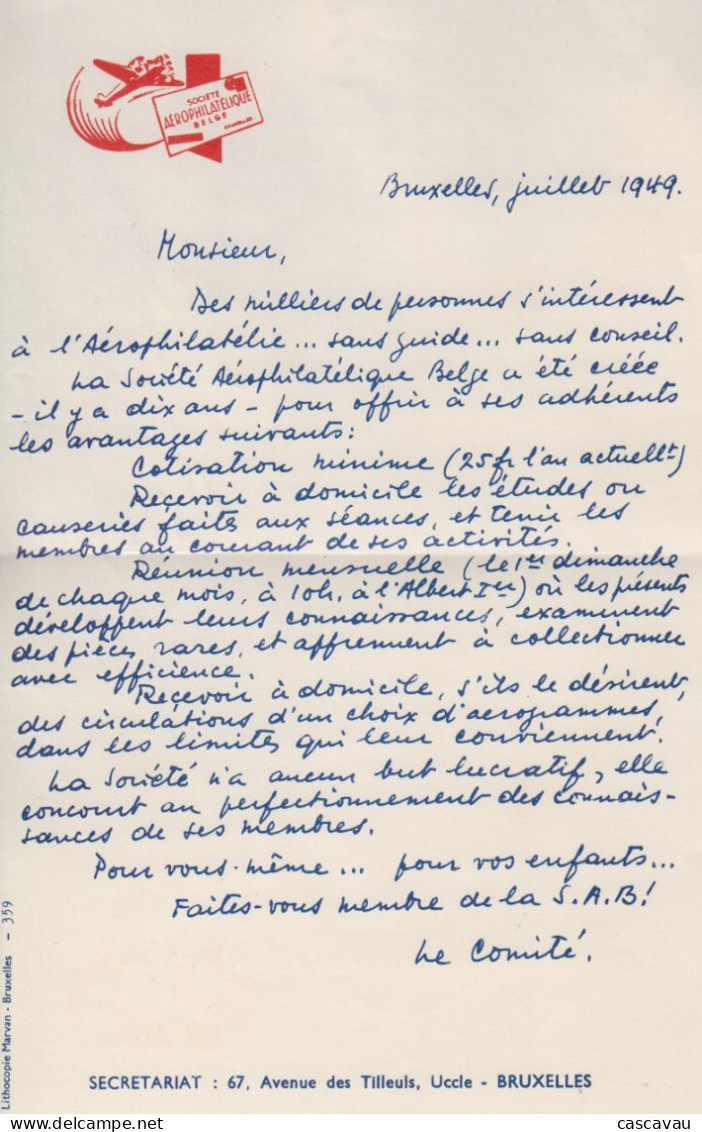 SOCIETE
AEROPHILATÉLIQUE
BELGE
Bruxelles, juillet 1949.
Monsieur,
Des milliers de personnes s'intéressent
à l'Aérophilatélie... sans guide... sans conseil.
La Société Aérophilatélique Belge a été créée
- il y a dix ans - pour offrir à ses adhérents
les avantages suivants:
Cotisation minime (25 fr l'an actuellt)
Reçevoir à domicile les études ou
causeries faites aux séances, et tenir les
membres au courant de ses activités.
Réunion mensuelle (le 1er dimanche
de chaque mois, à 10h. à l'Albert Ier) où les présents
développent leurs connaissances, examinent
des pièces rares, et apprennent à collectionner
avec efficience.
Recevoir à domicile, s'ils le désirent,
des circulations d'un choix d'aerogrammes,
dans les limites qui leur conviennent.
La Société n'a aucun but lucratif, elle
concourt au perfectionnement des connais-
sances de ses membres.
Pour vous-même... pour vos enfants...
Faites-vous membre de la S.A.B!
Le Comité.
Lithocopie Marvan - Bruxelles - 359
SECRETARIAT : 67, Avenue des Tilleuls, Uccle - BRUXELLES
cascavau